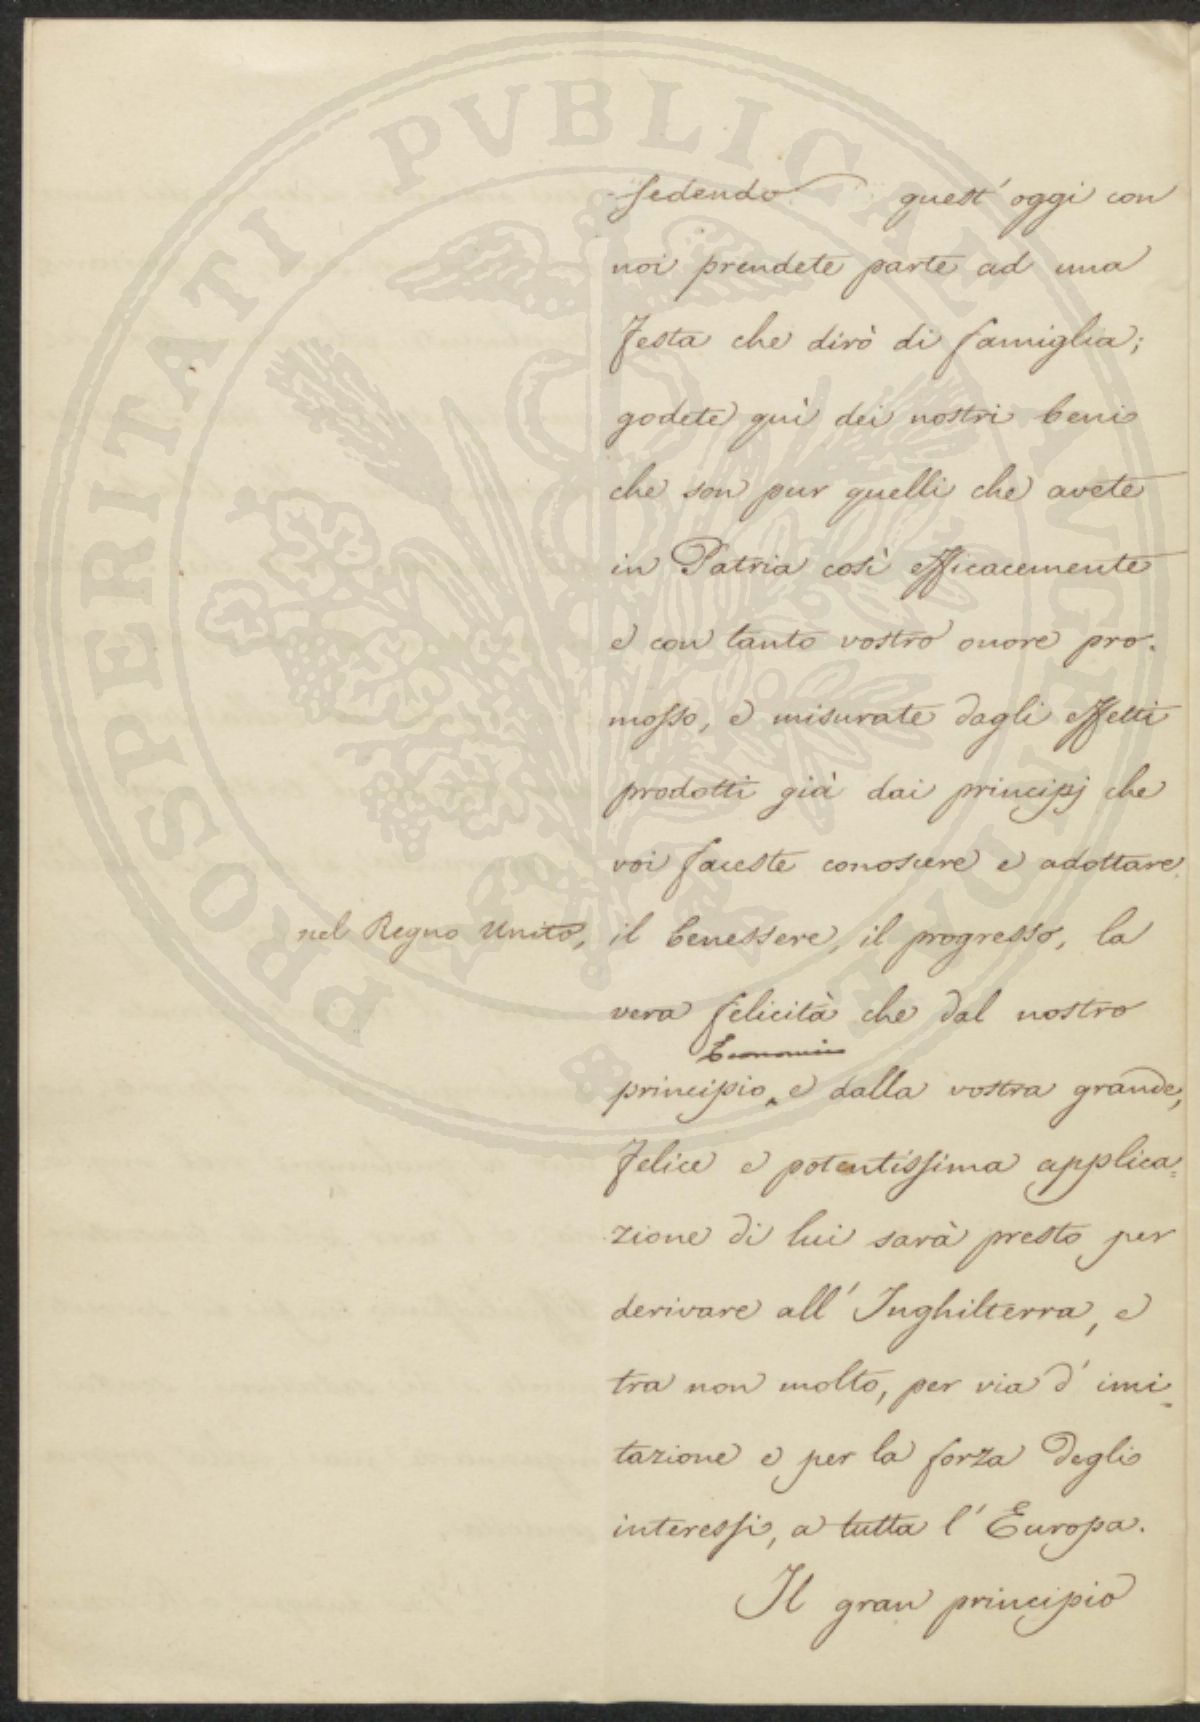 PROSPERITATI PVBLICAE AVGENDAE
sedendo quest' oggi con
noi prendete parte ad una
festa che dirò di famiglia;
godete quì dei nostri beni
che son pur quelli che avete
in Patria così efficacemente
e con tanto vostro onore pro-
mosso, e misurate dagli effetti
prodotti già dai principj che
voi faceste conoscere e adottare
nel Regno Unito, il benessere, il progresso, la
vera felicità che dal nostro
Economico
principio e dalla vostra grande,
felice e potentissima applica=
zione di lui sarà presto per
derivare all' Inghilterra, e
tra non molto, per via d' imi=
tazione e per la forza degli
interessi, a tutta l' Europa.
Il gran principio